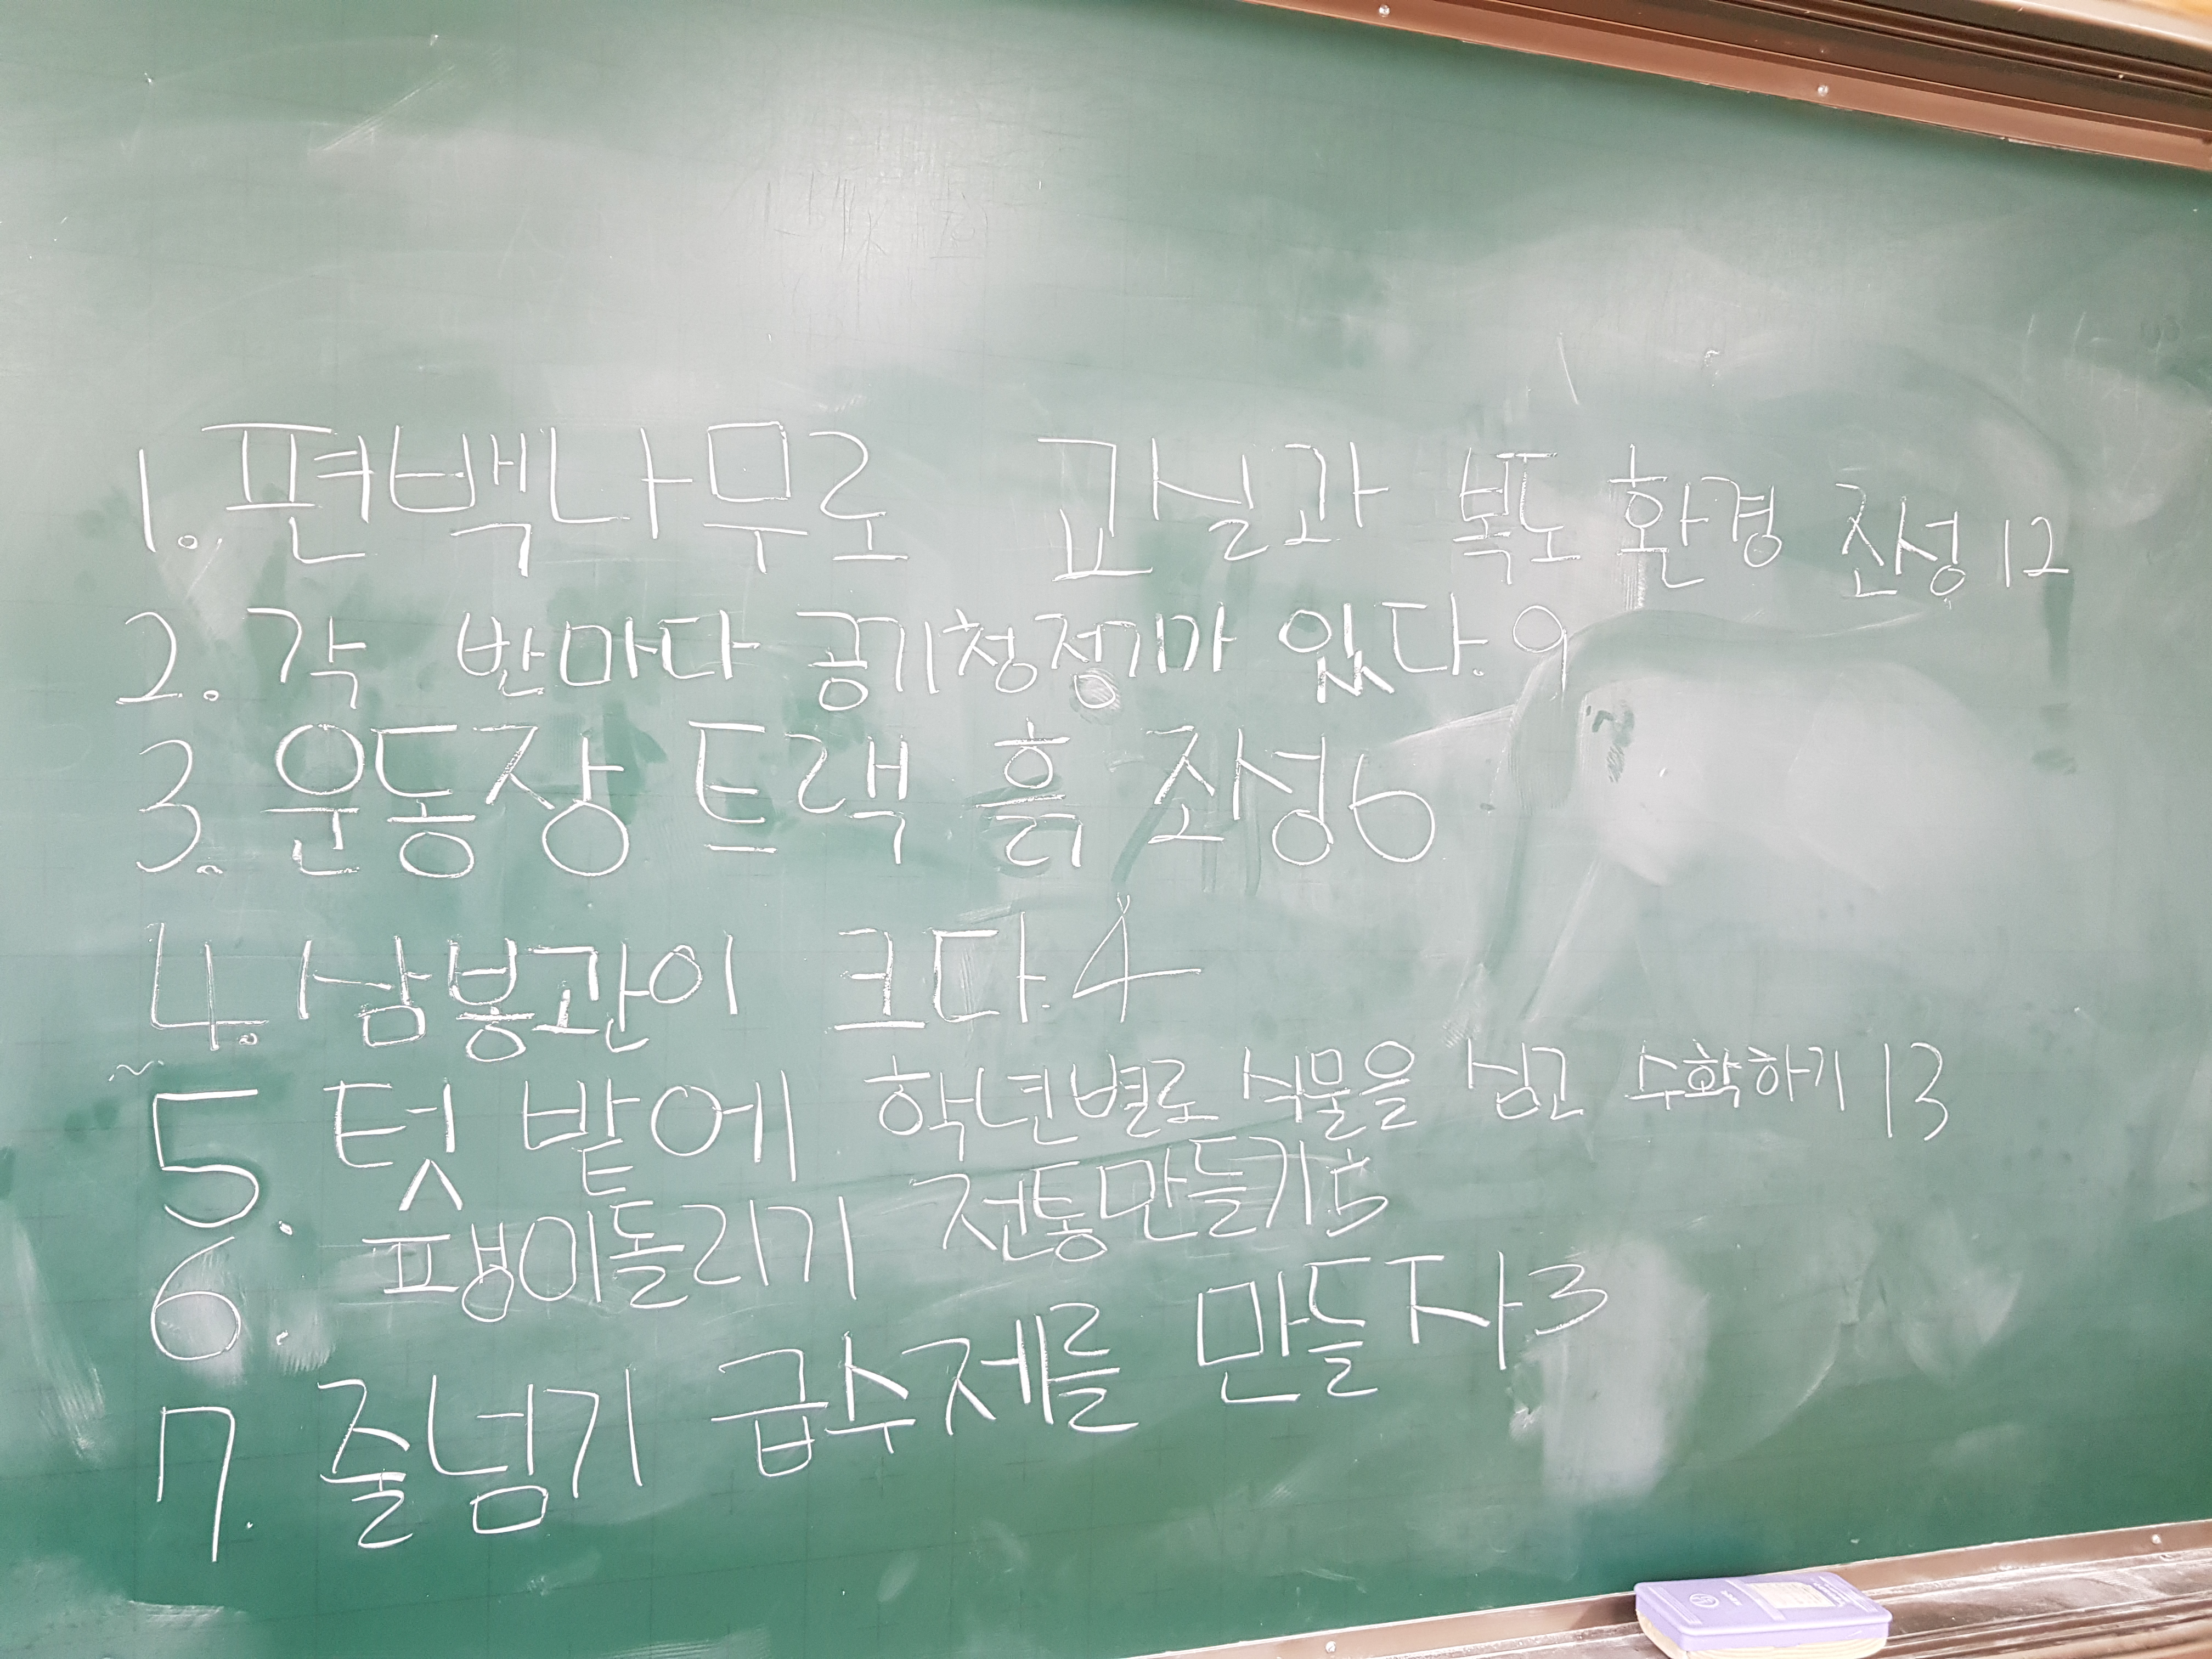 1. 편백나무로 교실과 복도 환경 조성 12
2. 각 반마다 공기청정기가 있다. 9
3. 운동장 트랙 흙 조성 6
4. 삼봉관이 크다. 4
5. 텃밭에 학년별로 식물을 심고 수확하기 13
6. 팽이돌리기 전통만들기 5
7. 줄넘기 급수제를 만들자 3